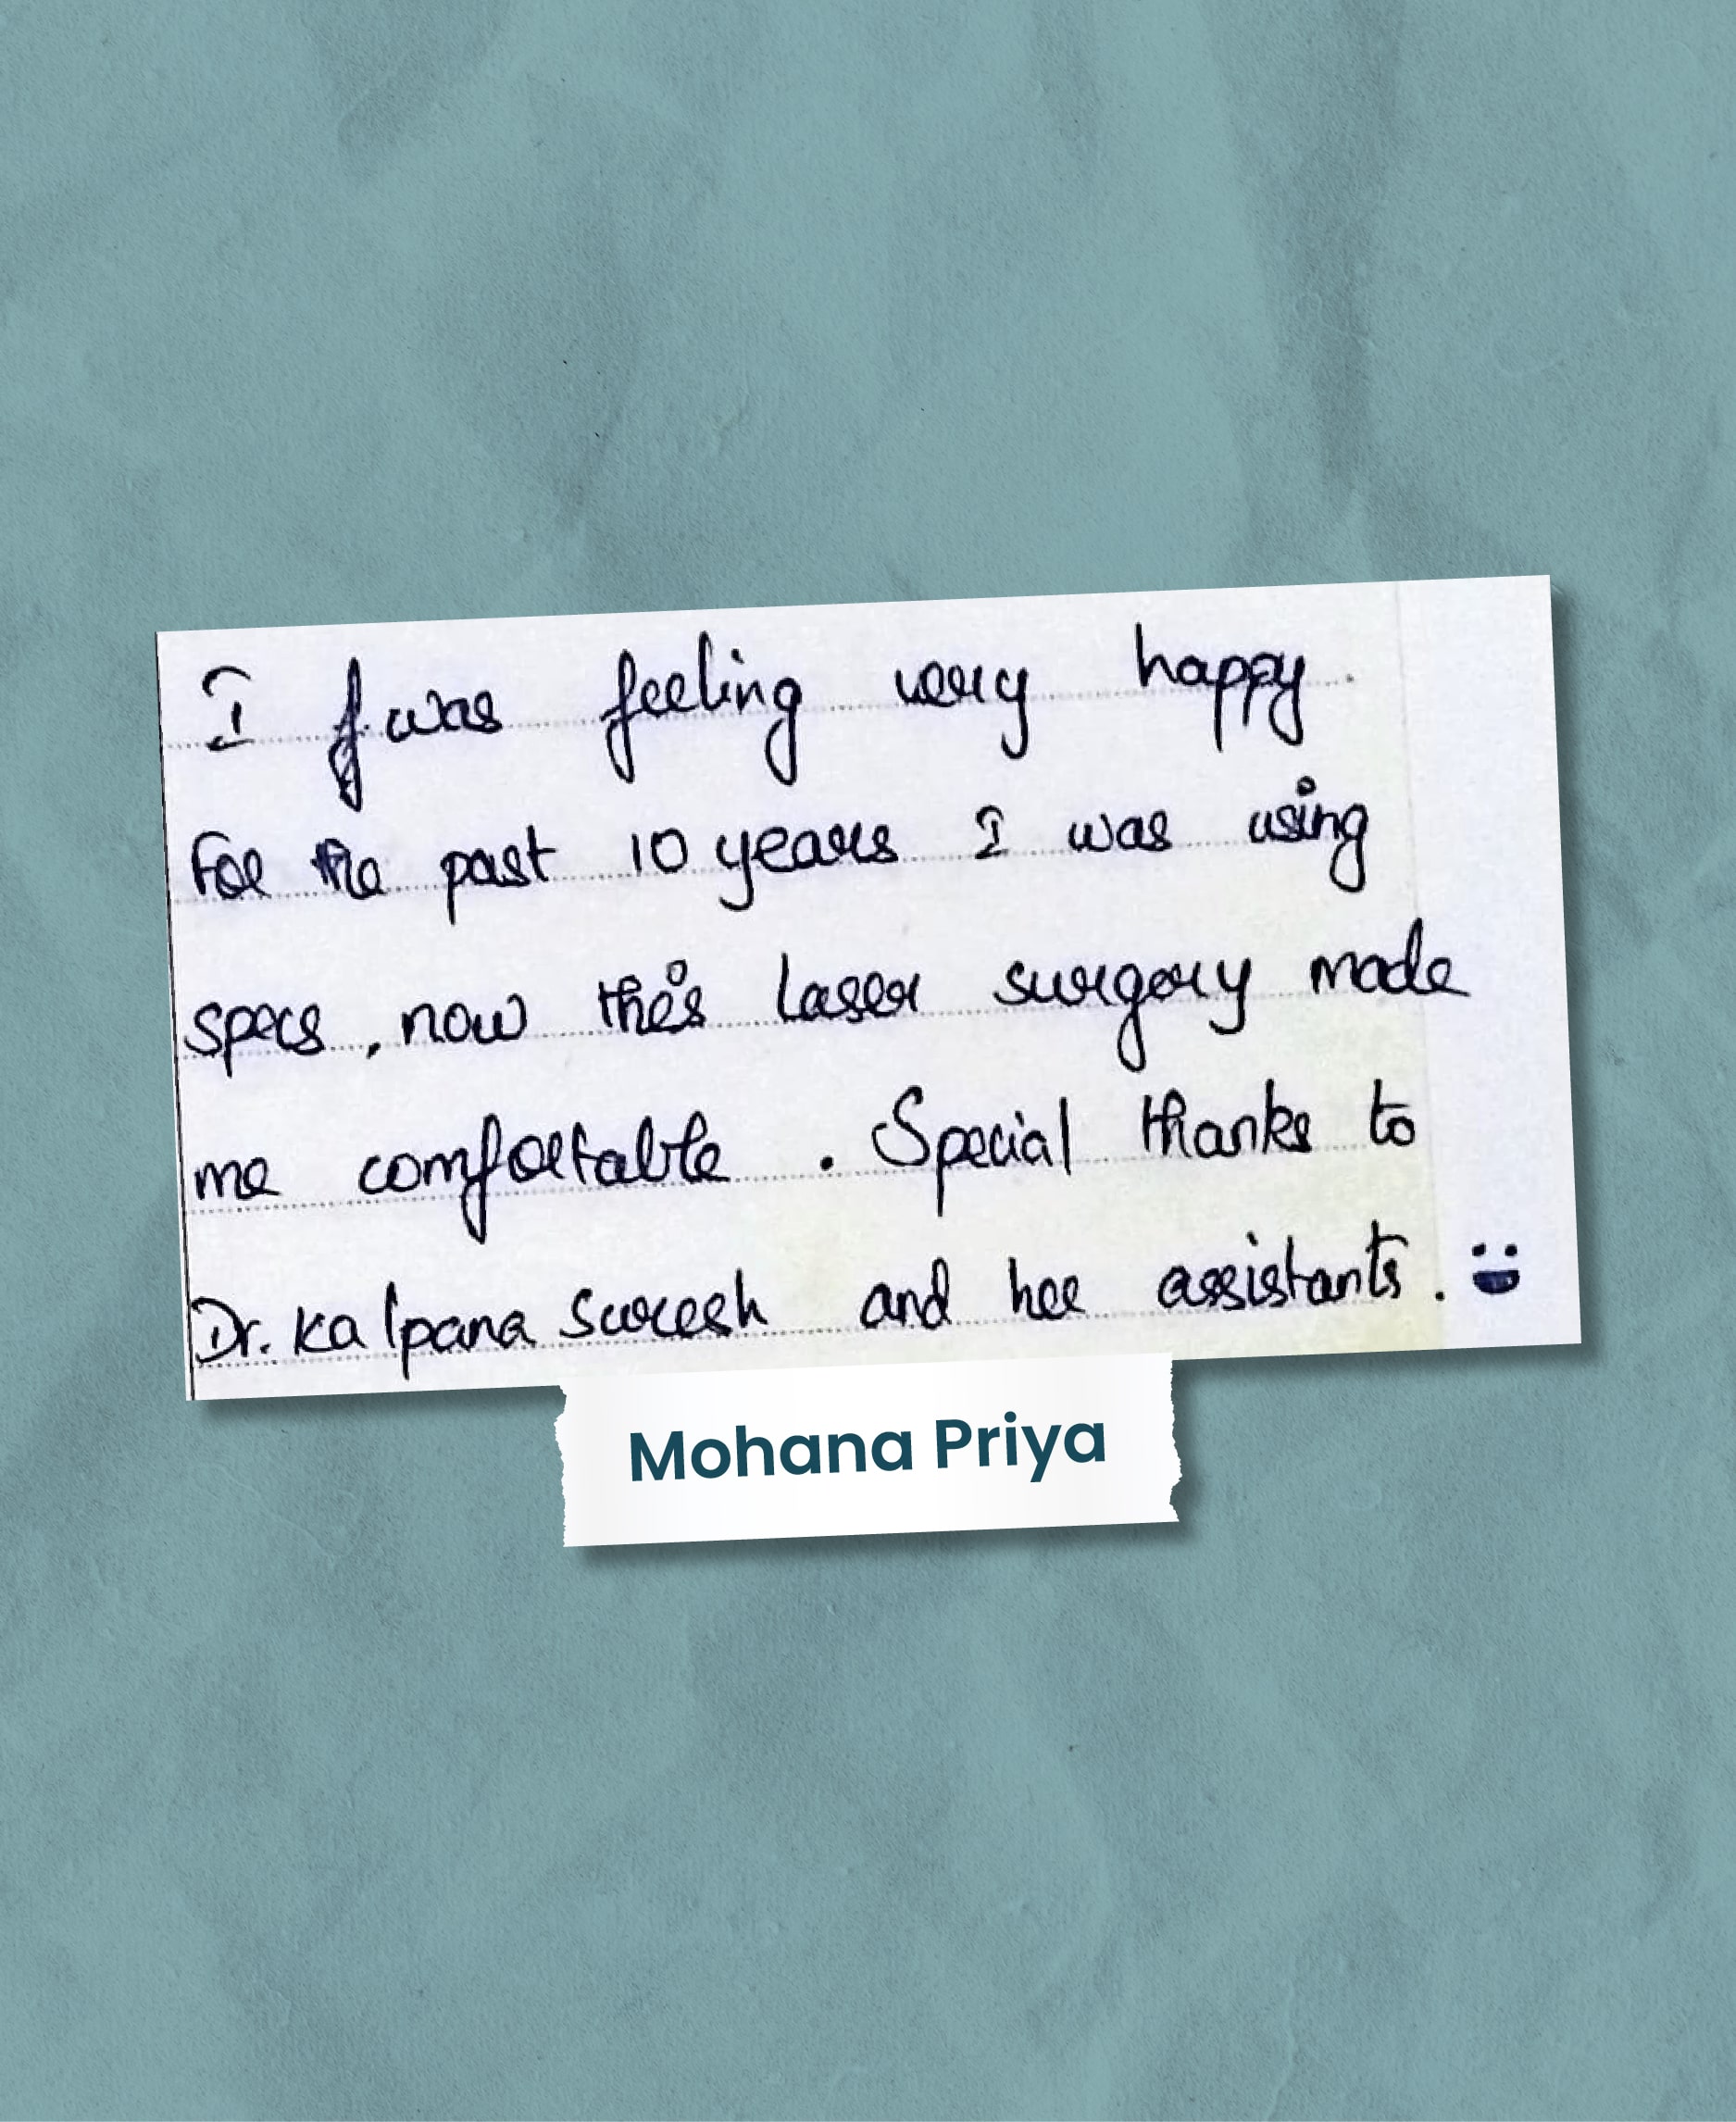 I was feeling very happy.
For the past 10 years I was using
specs, now this laser surgery made
me comfortable. Special thanks to
Dr. Kalpana Suresh and her assistants.
Mohana Priya